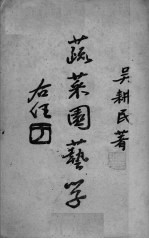 吴耕民著
蔬菜園藝学
右任